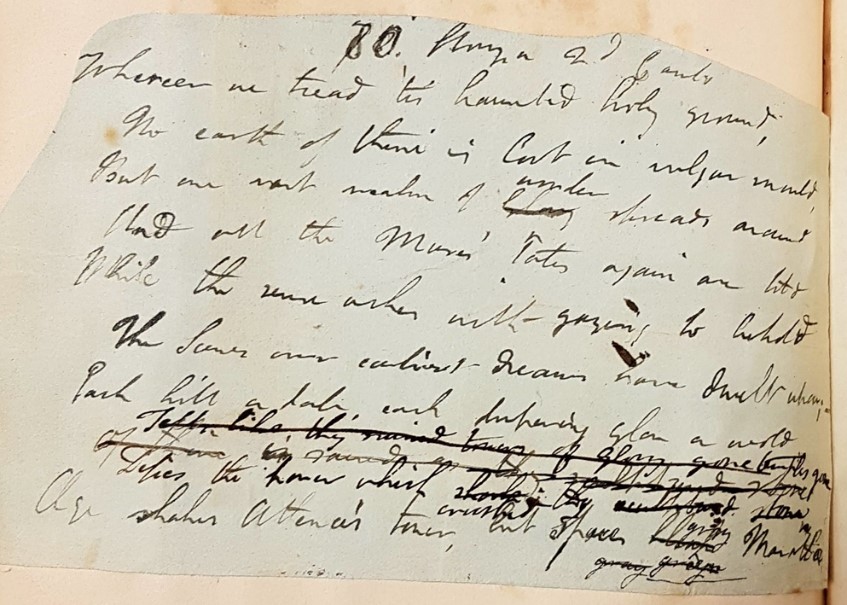 80. Stanza 2d Canto
Whereer we tread tis haunted holy ground,
No earth of thine is lost in vulgar mould,
wonder
But one vast realm of spreads around
And all the Muses' Tales again are told
While the sense aches with gazing to behold
The Scenes our earliest dreams have dwelt upon,
Each hill & dale, each deepening glen & wold
like thy ruined towers of Glory gone temples gone
Of thine
Defies the power which
crushed
Age shakes Athena's tower, but spares gray Marathon
gray